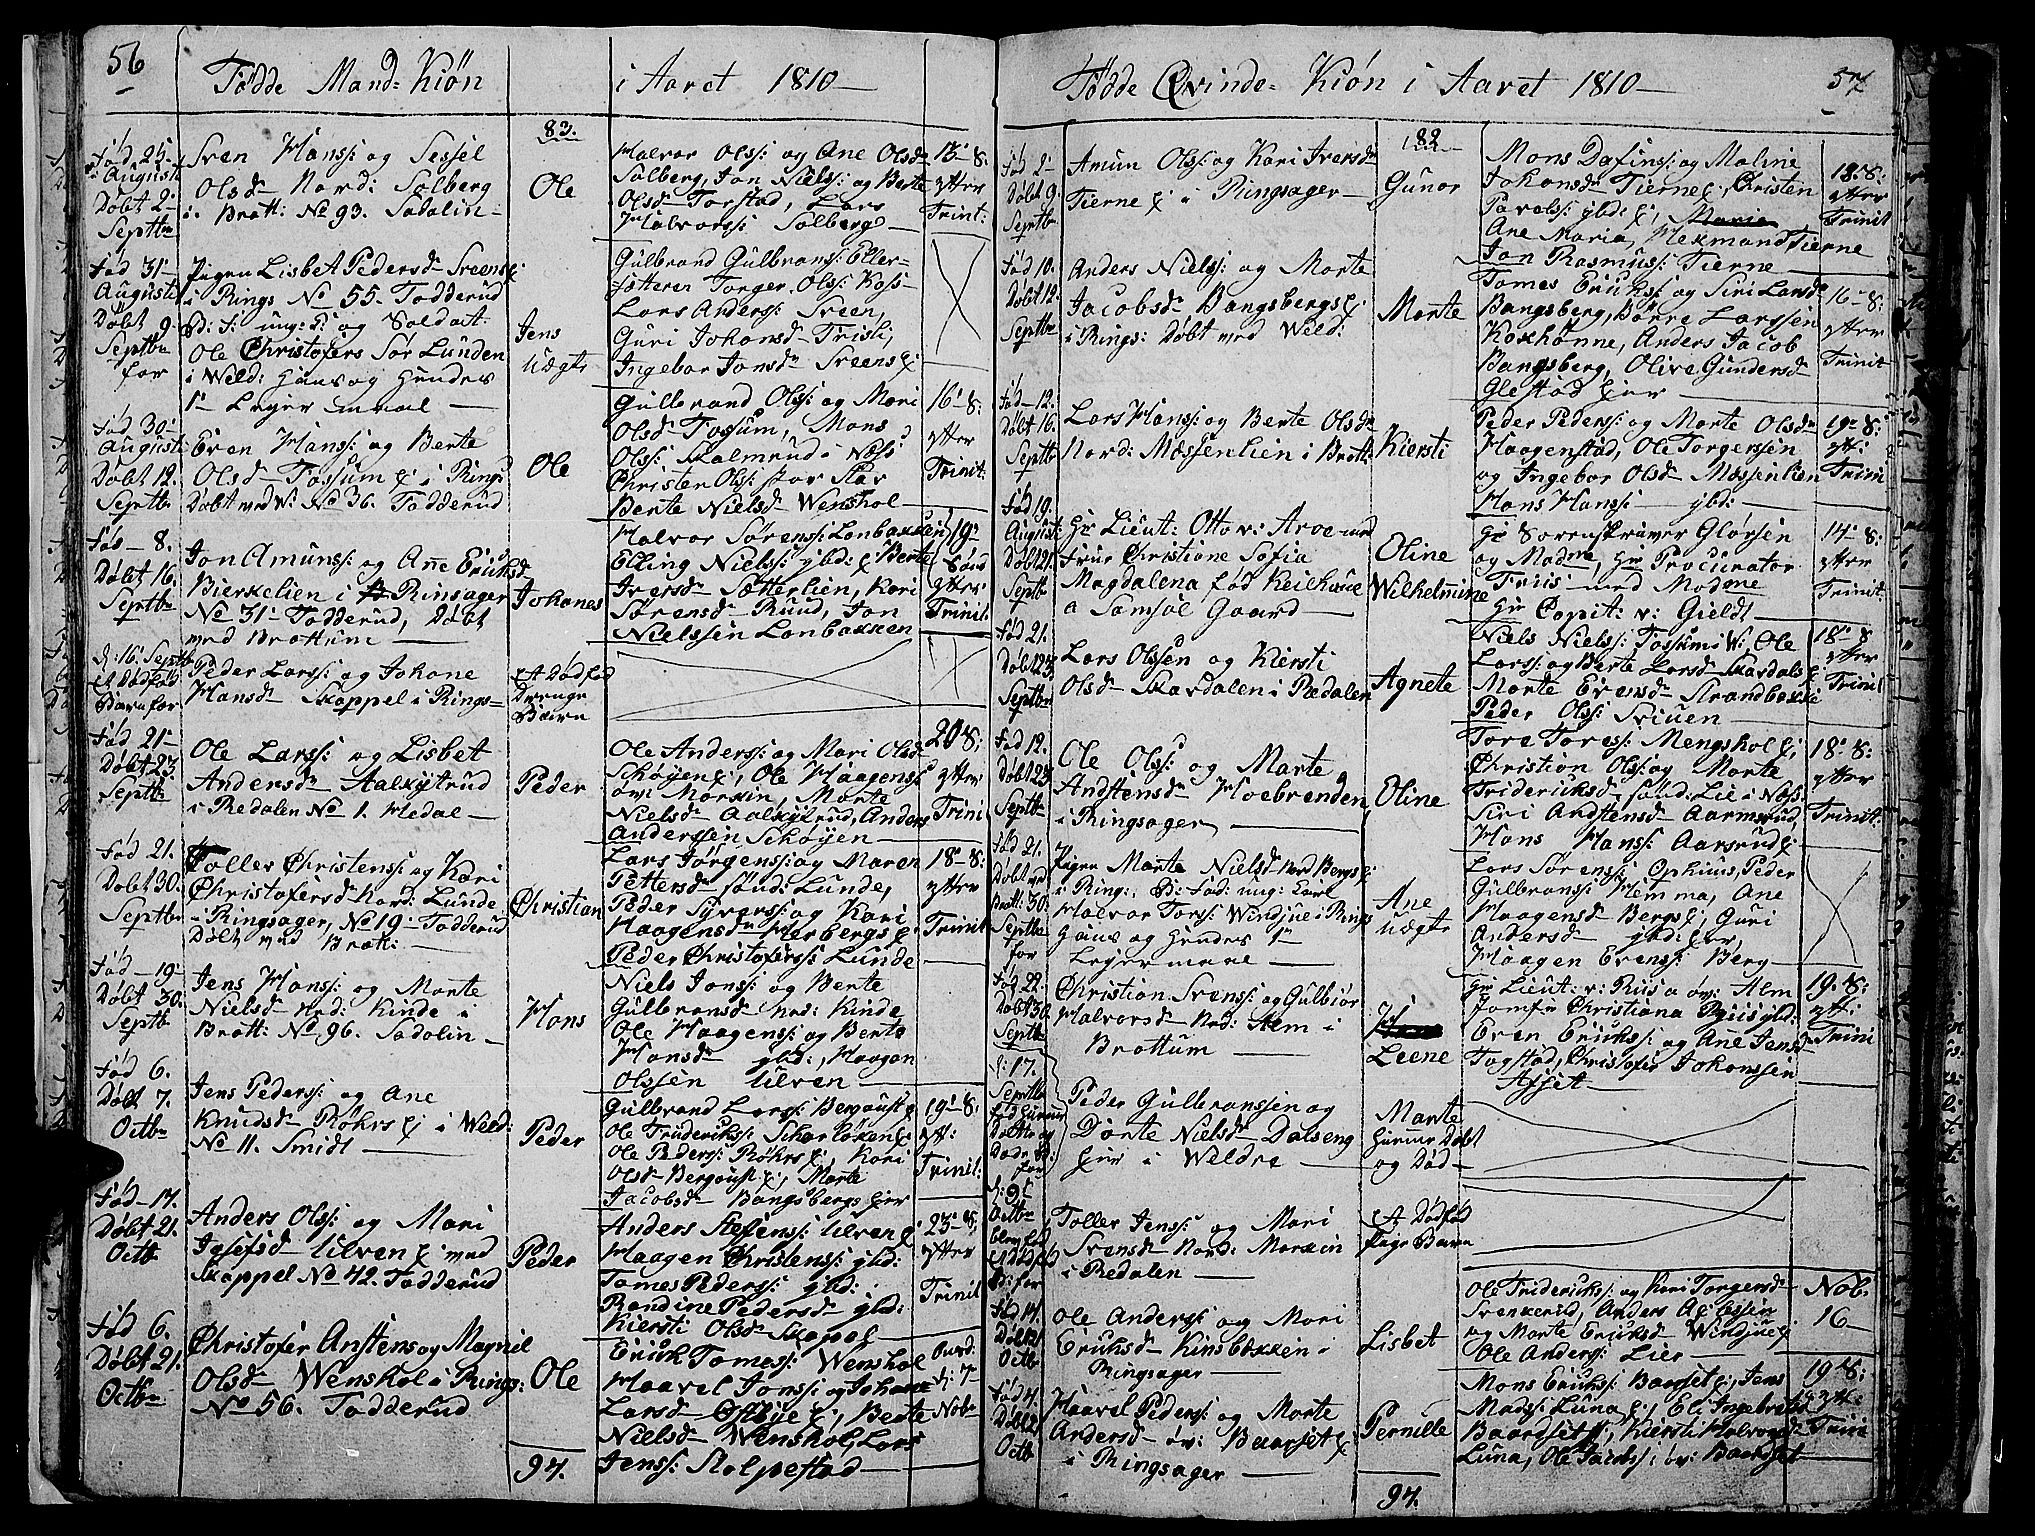 56
Fødde Mand= Kiøn i Aaret 1810
83.
Fød 25.
Augusti
Døbt 2.
Septbr
Sven Hanss: og Sessel
Olsd Nord: Solberg
i Brøtt: No 93. Sadalin
Ole
Halvor Olss: og Ane Olsd
Solberg, Jon Nielss: og Berte
Olsd Torstad, Lars
Halvorss: Solberg
13-8:
ytter
Trinit:
Fød 31
Augusti
Døbt 9
Septbr
for
Pigen Lisbet Pedersd Sveens
i Rings No 55. Fodderud
B: F: ung: K: og Soldat:
Ole Christofers Sør Lunden
i Weld: Hans og Hendes
1 Leyermaal
Jens
uægte
Gulbrand Gulbrans: Eller-
Torger Olss:
Lars Anderss: Sveen,
Guri Johansd Frisli,
Ingebor Jonsd Sveens
Fød 30:
Augusti
Døbt 12.
Septbr
Even Hanss: og Berte
Olsd Fossum i Rings
Døbt ved W: No 36. Fodderud
Ole
Gulbrand Olss: og Mari
Olsd Fossum, Mons
Olss: Kalmrud i Næss
Christen Olss: stor Skar
Berte Nielsd Wenshol
16-8:
ytter
Trinit:
Fød 8.
Døbt 16.
Septbr
Jon Amunss: og Anne Eriksd
Bierkelien i Rinsager
No 31 Fodderud, Døbt
ved Brøttum
Johanes
Halvor Sørenss: Lonbakken
Elling Nielss: ybd: Berte
Iversd Sætterlien, Kari
Sørensd Ruud, Jon
Nielssen Lonbakken
19
ytter
Trinit:
d: 16 Septbr
et Dødfød
Barn for
Peder Larss: og Johane
Hansd Skappel i Rings=
et Dødfød
Drenge
Bæren
Fød 21
Døbt 23.
Septbr
Ole Larss: og Lisbet
Andersd Aalkytrud
i Redalen No 1. Medal
Peder
Ole Anderss: og Mari Olsd
Schøyen, Ole Haagens:
øv: Morskin Marte
Nielsd Aalkytrud, Anders
Anderssen Schøyen
20-8:
ytter
Trini
Fød 21.
Døbt 30.
Septbr
Toller Christenss: og Kari
Christofersd Nord: Lunde
i Ringsager, No 19 Fodderud
Døbt ved Brøtt:
Christian
Lars Jørgenss: og Maren
Pettersd sønd: Lunde,
Peder Syverss: og Kari
Haagensd Herbergs
Peder Christoferss: Lunde
18-8:
ytter
Trinit
Fød 19
Døbt 30.
Septbr
Jens Hanss: og Marte
Nielsd Nrd: Kinde i
Brøtt: No 96. Sadolin
Hans
Niels Jonss: og Berte
Gulbransd Nrd: Kinde
Ole Haagenss: og Berte
Hansd ybd:, Haagen
Olssen Ulven
Fød 6.
Døbt 7.
Octbr
Jens Pederss: og Ane
Knudsd Røhrs i Weld:
No 11. Smidt
Peder
Gulbrand Larss: Bergaust
Ole Frideriks: Scharløken
Ole Pederss: Røhrs, Kari
Olsd Bergaust, Marte
Jacobsd Bangsbergs eier
19-8:
ytt:
Trinit:
Fød 17.
Døbt 21.
Octb
Anders Olss: og Mari
Josefsd Ulven med
Skappel No 42. Fodderud
Peder
Anders Stefens: Ulven
Haagen Christenss: ybd:
Tomes Pederss: ybd:
Randine Pedersd ybd:
Kiersti Olsd Skappel
23-8:
ytter
Trinit
Fød 6.
Døbt 21.
Octbr
Christofer Anstens og Magnil
Olsd Wenshol i Rings:
No 56. Fodderud
Ole
Erick Tomess: Wenshol
Haavel Jonss: og Johane
Larsd Østbye, Berte
Nielsd Wenshol, Lars
Jenss: Stolpestad
d: 7
Nobr
97.
57
Fødde Qvinde= Kiøn i Aaret 1810
82
Fød 2
Døbt 9.
Septbr
Amun Olss: og Kari Iversd
Tierne i Ringsager
Gunor
Mons Dafinss: og Maline
Johansd Tierne, Christen
Pavelss: ybd:, Maria
Ane Maria, Hexmand Tierne
Jon Rasmuss: Tierne
18-8:
ytter
Trinit
Fød 10.
Døbt 12.
Septbr
Anders Nielss: og Marte
Jacobsd Bangsbergs
i Rings: Døbt ved Weld:
Marte
Tomes Erikss: og Siri Larsd
Bangsberg, Børre Larssen
Koxhonne, Anders Jacob
Bangsberg, Olive Gundersd
Glestad eier
16-8:
ytter
Trinit
Fød 12.
Døbt 16.
Septbr
Lars Hanss: og Berte Olsd
Nord: Messenlien i Brøtt:
Kiersti
Peder Pederss: og Marte Olsd
Haagenstad, Ole Torgerssen
og Ingebor Olsd Messenlien
Hans Hanss: ybd:
19-8:
ytt:
Trinit
Fød 19.
August:
Døbt 21.
Septbr
Hr Lieut: Otto v: Aroe med
Frue Christiane Sofia
Magdalena fød Keilhaue
a Samsøl Gaard
Oline
Wilhelmine
Hr Sorenskriver Gløersen
og Madme, Hr Procurator
Friis med Madme
Hr Capit: v: Gieldt
14-8:
ytter
Trinit:
Fød 21.
Døbt 23.
Septbr
Lars Olssen og Kiersti
Olsd Skardalen i Redalen
Agnete
Niels Nielss: Fossum i W:, Ole
Larss: og Berte Larsd Skardals
Marte Evensd Strandbakke
Peder Olss: Sviuen
18-8
ytter
Trinit
Fød 12.
Døbt 23.
Septbr
Ole Olss: og Marte
Andstensd Hoebrenden
i Ringsager
Oline
Tore Toress: Mengshol,
Christian Olss: og Marte
Frideriksd sønd: Lie i Næss
Siri Andstensd Aarmsrud,
Hans Hanss: Aarsrud
18-8:
ytter
Trinit:
Fød 21.
Døbt ved
Brøtt: 30.
Septbr
for
Pigen Marte Nielsd Nrd Bergs
i Ring:, B: Fad: ung: Karl
Halvor Torss: Windjue i Rings
Hans og Hendes 1
Leyermaal
Ane
uægte
Lars Sørenss: Ophuus, Peder
Gulbranss: Hemma, Ane
Haagensd Bergs, Guri
Andersd ybd: eier,
Haagen Evenss: Berg
Fød 22.
Døbt 30.
Septbr
Christian Svenss: og Gulbiør
Halvorsd Nrd: Alm i
Brøttum
Leene
Hr Lieut: v: Ruus a øv: Alm
Jomfr Christiana Ruus ybd:
Even Erikss: og Ane Jensd
Fogstad, Christofer Johanssen
Afset
19-8:
ytt:
Trinit
d: 17.
Septbr
fød Hiemme
Døbt og
Død B:
for
Peder Gulbranssen og
Dorte Nielsd Dalseng
eier i Weldre
Marte
Hiemme Døbt
og Død
d: 9
Octbr
blev fød
et Dødfød
B: for
Toller Jenss: og Mari
Svensd Nord: Morskin
i Redalen
et Dødfød
Pige Barn
Fød 14.
Døbt 21.
Octbr
Ole Anderss: og Mari
Eriksd Kinsbakken i
Ringsager
Lisbet
Ole Friderikss: og Kari Torgersd
Svenkerud, Anders
og Marte Eriksd Windjue
Ole Anderss: Lier
Nob.
16
Fød 4.
Døbt 21
Octb
Haavel Pederss: og Marte
Andersd øv: Baarset
i Ringsager
Pernille
Mons Erikss: Baarset, Jens
Madss: Luna, Eli Ingebretsd
Baardset, Kiersti Halvorsd
Luna, Ole Jacobss: øv: Baardset
19-8:
ytt:
Trini
97.